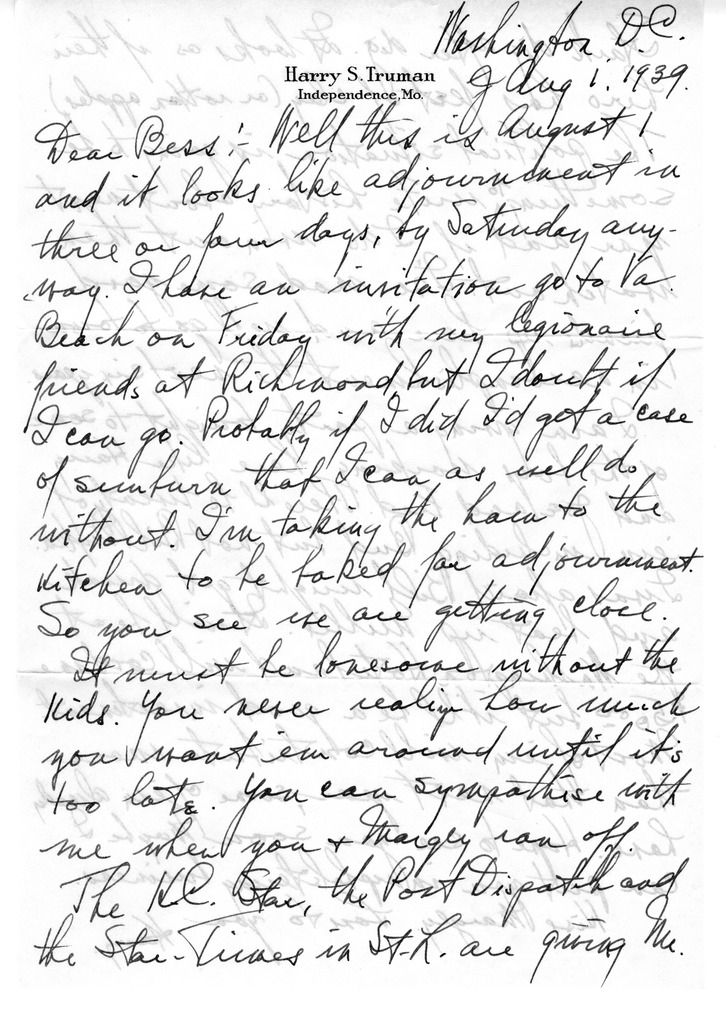 Washington, D.C.
Harry S. Truman
Independence, Mo.
Aug 1, 1939.
Dear Bess:- Well this is August 1
and it looks like adjournment in
three or four days, by Saturday any-
way. I have an invitation go to Va.
Beach on Friday with my legionaire
friends at Richmond but I doubt if
I can go. Probably if I did I'd get a case
of sunburn that I can as well do
without. I'm taking the ham to the
kitchen to be baked for adjournment.
So you see we are getting close.
It must be lonesome without the
kids. You never realize how much
you want em around until it's
too late. You can sympathise with
me when you + Margey ran off.
The K.C. Star, the Post Dispatch and
the Star-Times in St. L. are giving Mr.